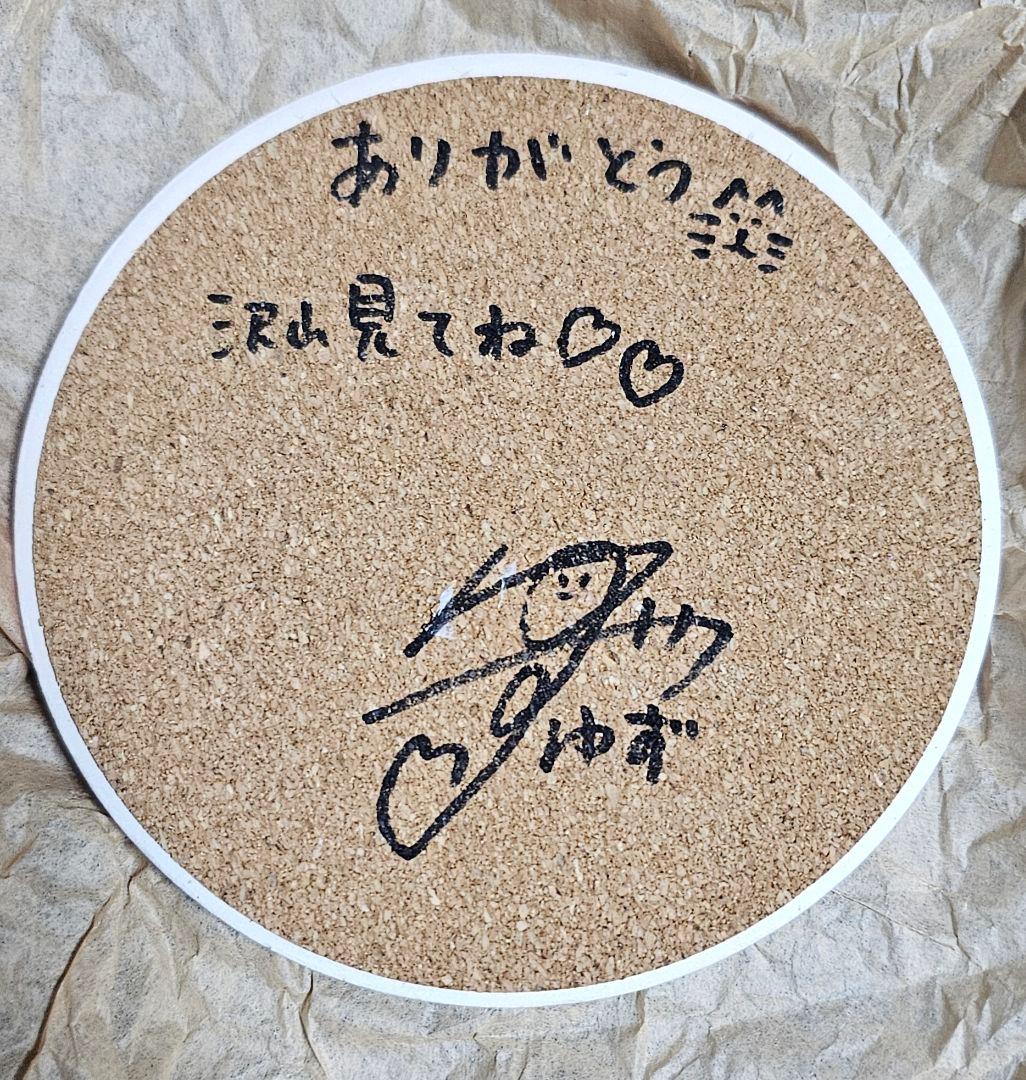 ありがとう
沢山見てね♡♡
ゆず